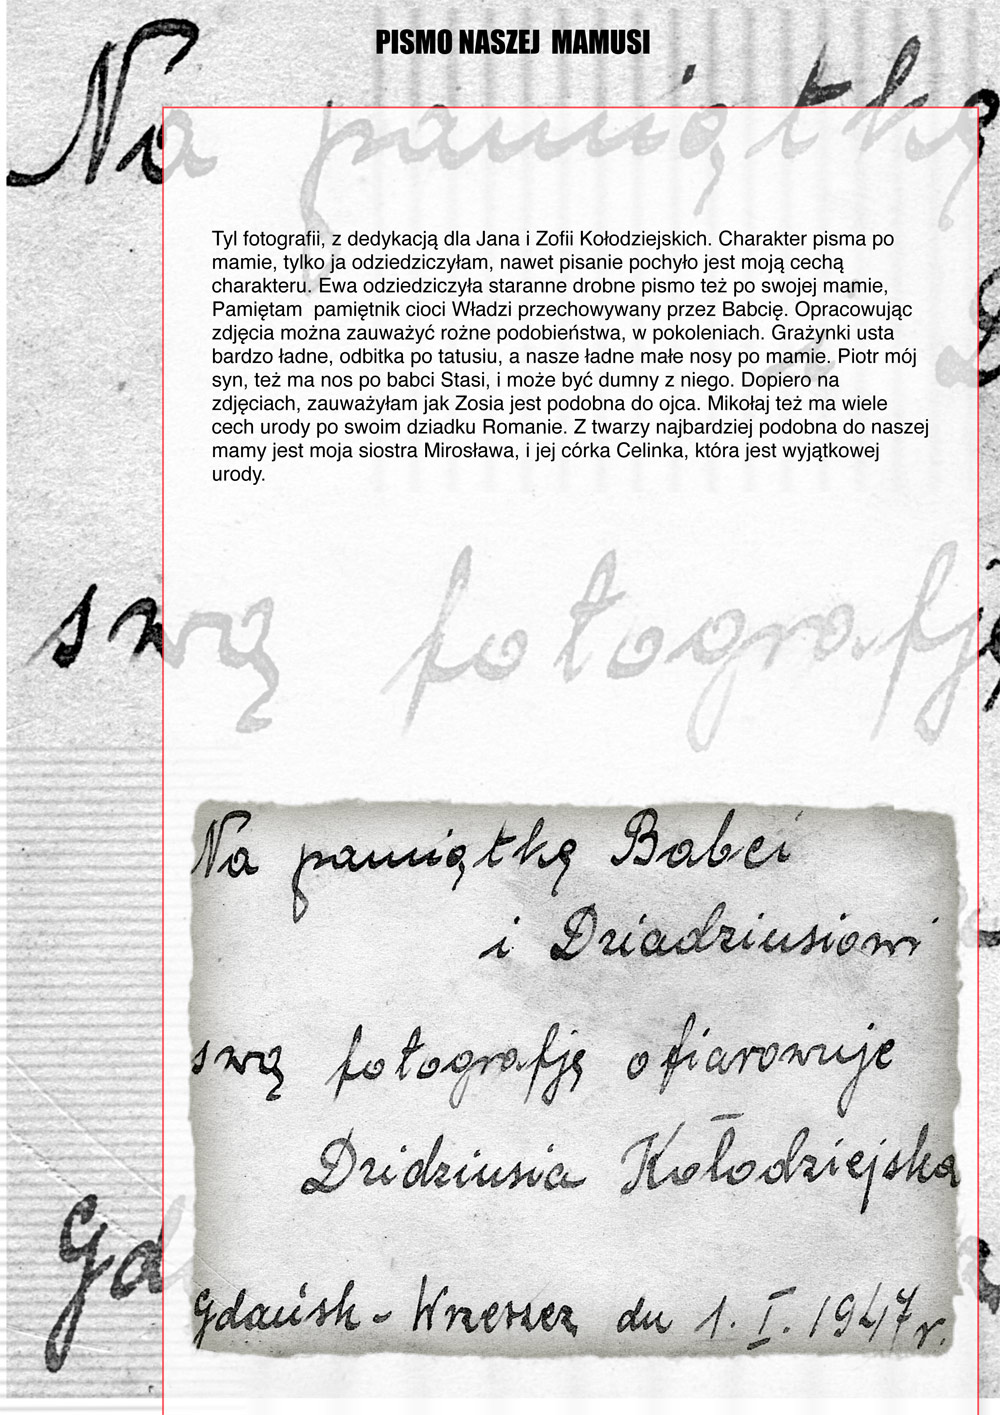 PISMO NASZEJ  MAMUSI
Na pamiątkę
Tyl fotografii, z dedykacją dla Jana i Zofii Kołodziejskich. Charakter pisma po
mamie, tylko ja odziedziczyłam, nawet pisanie pochyło jest moją cechą
charakteru. Ewa odziedziczyła staranne drobne pismo też po swojej mamie,
Pamiętam  pamiętnik cioci Władzi przechowywany przez Babcię. Opracowując
zdjęcia można zauważyć rożne podobieństwa, w pokoleniach. Grażynki usta
bardzo ładne, odbitka po tatusiu, a nasze ładne małe nosy po mamie. Piotr mój
syn, też ma nos po babci Stasi, i może być dumny z niego. Dopiero na
zdjęciach, zauważyłam jak Zosia jest podobna do ojca. Mikołaj też ma wiele
cech urody po swoim dziadku Romanie. Z twarzy najbardziej podobna do naszej
mamy jest moja siostra Mirosława, i jej córka Celinka, która jest wyjątkowej
urody.
swą fotografję
Na pamiątkę Babci
i Dziadziusiowi
swą fotografję ofiarowuje
Dzidziusia Kołodziejska
Gd
Gdańsk - Wrzeszcz dn 1. I. 1947 r.